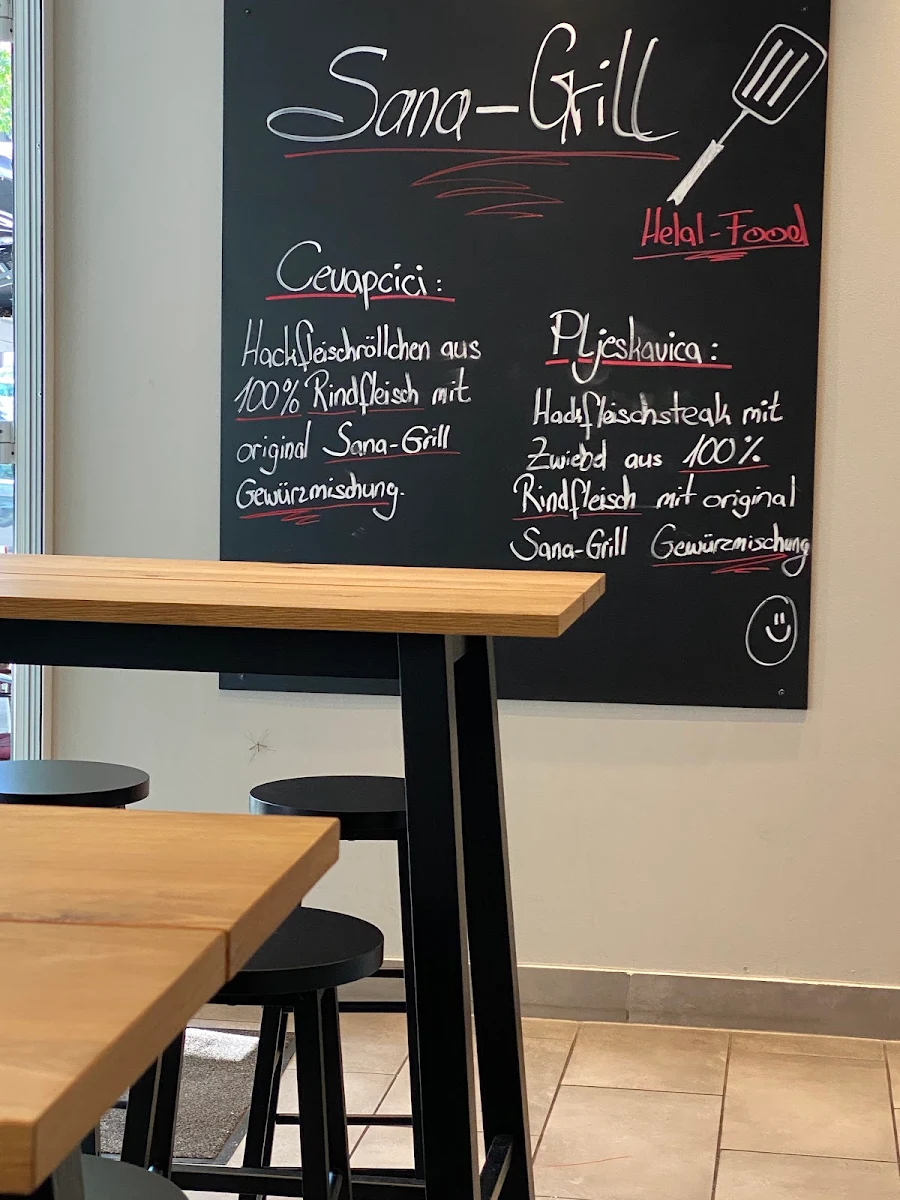 Sana-Grill
Helal-Food
Cevapcici:
Hackfleischröllchen aus
100% Rindfleisch mit
original Sana-Grill
Gewürzmischung.
Pljeskavica:
Hackfleischsteak mit
Zwiebel aus 100%
Rindfleisch mit original
Sana-Grill Gewürzmischung